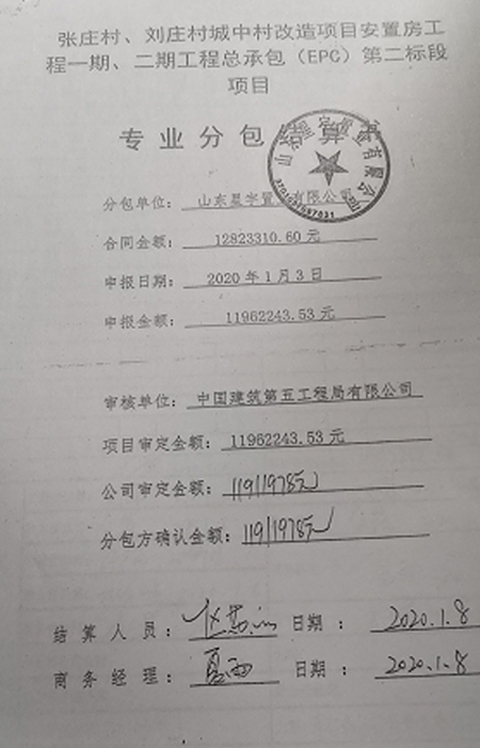 张庄村、刘庄村城中村改造项目安置房工
程一期、二期工程总承包（EPC）第二标段
项目
专业分包结算书
分包单位：山东星宇置业有限公司
合同金额：12823310.60元
申报日期：2020年1月3日
申报金额：11962243.53元
审核单位：中国建筑第五工程局有限公司
项目审定金额：11962243.53元
公司审定金额：11911978元
分包方确认金额：11911978元
结算人员： 日期：2020.1.8
商务经理：夏雨 日期：2020.1.8